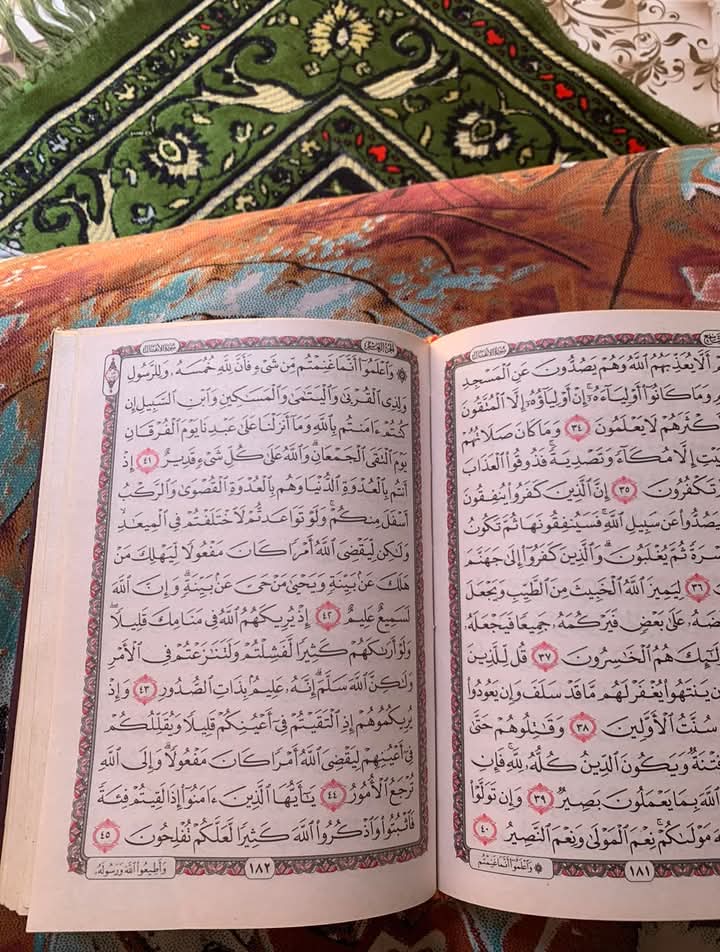 سورة الأنفال
مَ أَلَّا يُعَذِّبَهُمُ ٱللَّهُ وَهُمْ يَصُدُّونَ عَنِ ٱلْمَسْجِدِ
وَمَا كَانُوٓا۟ أَوْلِيَآءَهُۥٓ إِنْ أَوْلِيَآؤُهُۥٓ إِلَّا ٱلْمُتَّقُونَ
كْثَرَهُمْ لَا يَعْلَمُونَ ٣٤ وَمَا كَانَ صَلَاتُهُمْ
بَيْتِ إِلَّا مُكَآءً وَتَصْدِيَةً فَذُوقُوا۟ ٱلْعَذَابَ
تَكْفُرُونَ ٣٥ إِنَّ ٱلَّذِينَ كَفَرُوا۟ يُنفِقُونَ
يَصُدُّوا۟ عَن سَبِيلِ ٱللَّهِ فَسَيُنفِقُونَهَا ثُمَّ تَكُونُ
سْرَةً ثُمَّ يُغْلَبُونَ وَٱلَّذِينَ كَفَرُوٓا۟ إِلَىٰ جَهَنَّمَ
٣٦ لِيَمِيزَ ٱللَّهُ ٱلْخَبِيثَ مِنَ ٱلطَّيِّبِ وَيَجْعَلَ
ضَهُۥ عَلَىٰ بَعْضٍ فَيَرْكُمَهُۥ جَمِيعًا فَيَجْعَلَهُۥ
لَٰٓئِكَ هُمُ ٱلْخَٰسِرُونَ ٣٧ قُل لِّلَّذِينَ
إِن يَنتَهُوا۟ يُغْفَرْ لَهُم مَّا قَدْ سَلَفَ وَإِن يَعُودُوا۟
سُنَّتُ ٱلْأَوَّلِينَ ٣٨ وَقَٰتِلُوهُمْ حَتَّىٰ
فِتْنَةٌ وَيَكُونَ ٱلدِّينُ كُلُّهُۥ لِلَّهِ فَإِنِ
ٱللَّهَ بِمَا يَعْمَلُونَ بَصِيرٌ ٣٩ وَإِن تَوَلَّوْا۟
للَّهَ مَوْلَىٰكُمْ نِعْمَ ٱلْمَوْلَىٰ وَنِعْمَ ٱلنَّصِيرُ ٤٠
١٨١
وَٱعْلَمُوٓا۟ أَنَّمَا غَنِمْتُم
الجزء العاشر
سورة الأنفال
وَٱعْلَمُوٓا۟ أَنَّمَا غَنِمْتُم مِّن شَىْءٍ فَأَنَّ لِلَّهِ خُمُسَهُۥ وَلِلرَّسُولِ
وَلِذِى ٱلْقُرْبَىٰ وَٱلْيَتَٰمَىٰ وَٱلْمَسَٰكِينِ وَٱبْنِ ٱلسَّبِيلِ إِن
كُنتُمْ ءَامَنتُم بِٱللَّهِ وَمَآ أَنزَلْنَا عَلَىٰ عَبْدِنَا يَوْمَ ٱلْفُرْقَانِ
يَوْمَ ٱلْتَقَى ٱلْجَمْعَانِ وَٱللَّهُ عَلَىٰ كُلِّ شَىْءٍ قَدِيرٌ ٤١ إِذْ
أَنتُم بِٱلْعُدْوَةِ ٱلدُّنْيَا وَهُم بِٱلْعُدْوَةِ ٱلْقُصْوَىٰ وَٱلرَّكْبُ
أَسْفَلَ مِنكُمْ وَلَوْ تَوَاعَدتُّمْ لَٱخْتَلَفْتُمْ فِى ٱلْمِيعَٰدِ
وَلَٰكِن لِّيَقْضِىَ ٱللَّهُ أَمْرًا كَانَ مَفْعُولًا لِّيَهْلِكَ مَنْ
هَلَكَ عَنۢ بَيِّنَةٍ وَيَحْيَىٰ مَنْ حَىَّ عَنۢ بَيِّنَةٍ وَإِنَّ ٱللَّهَ
لَسَمِيعٌ عَلِيمٌ ٤٢ إِذْ يُرِيكَهُمُ ٱللَّهُ فِى مَنَامِكَ قَلِيلًا
وَلَوْ أَرَىٰكَهُمْ كَثِيرًا لَّفَشِلْتُمْ وَلَتَنَٰزَعْتُمْ فِى ٱلْأَمْرِ
وَلَٰكِنَّ ٱللَّهَ سَلَّمَ إِنَّهُۥ عَلِيمٌۢ بِذَاتِ ٱلصُّدُورِ ٤٣ وَإِذْ
يُرِيكُمُوهُمْ إِذِ ٱلْتَقَيْتُمْ فِىٓ أَعْيُنِكُمْ قَلِيلًا وَيُقَلِّلُكُمْ
فِىٓ أَعْيُنِهِمْ لِيَقْضِىَ ٱللَّهُ أَمْرًا كَانَ مَفْعُولًا وَإِلَى ٱللَّهِ
تُرْجَعُ ٱلْأُمُورُ ٤٤ يَٰٓأَيُّهَا ٱلَّذِينَ ءَامَنُوٓا۟ إِذَا لَقِيتُمْ فِئَةً
فَٱثْبُتُوا۟ وَٱذْكُرُوا۟ ٱللَّهَ كَثِيرًا لَّعَلَّكُمْ تُفْلِحُونَ ٤٥
١٨٢
وَأَطِيعُوا۟ ٱللَّهَ وَرَسُولَهُۥ